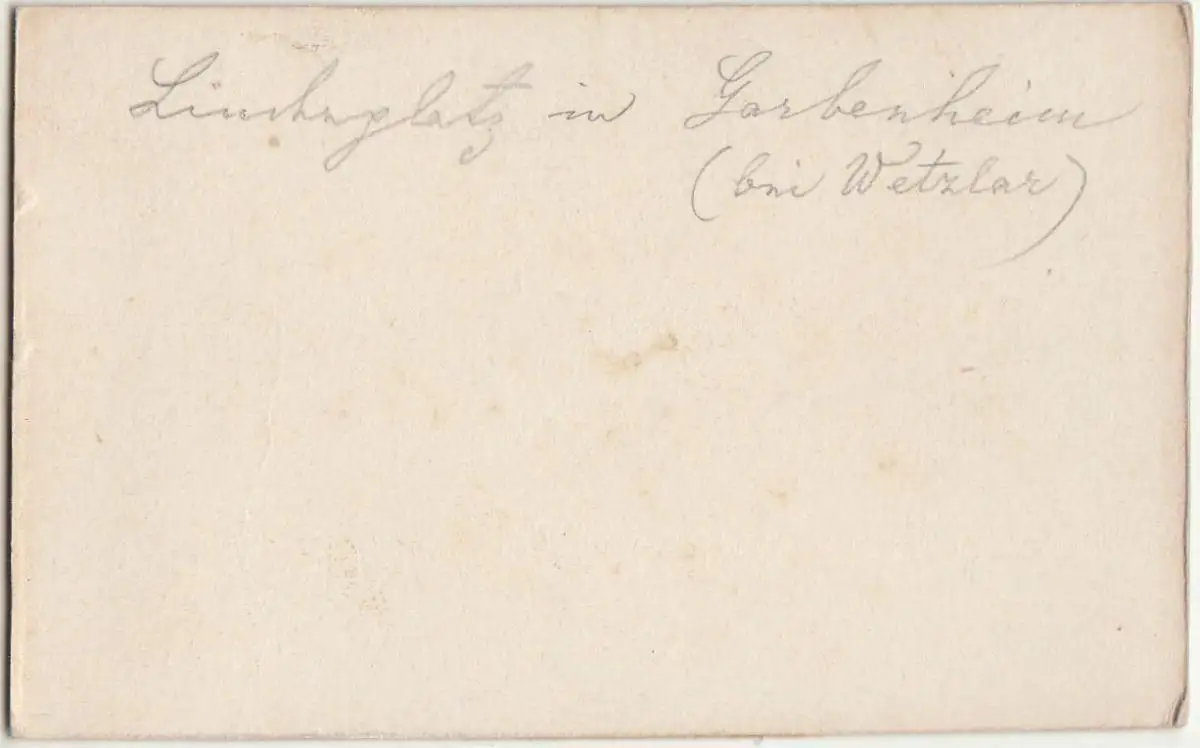 Lindenplatz in Garbenheim
(bei Wetzlar)